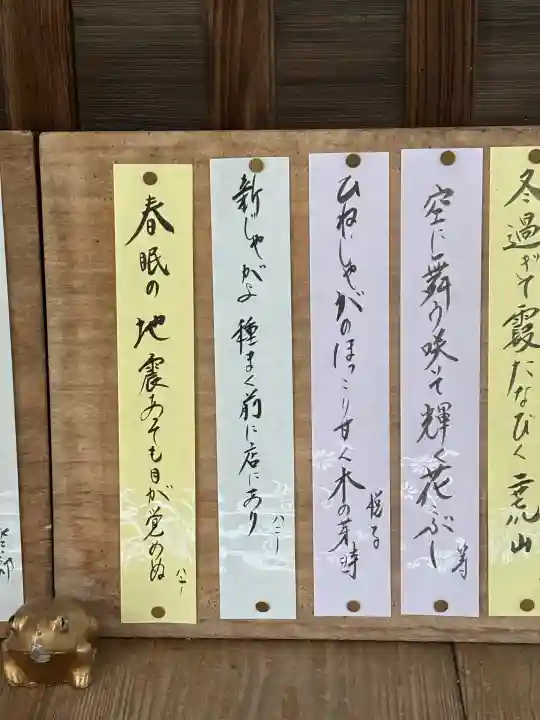 冬過ぎて霞たなびく二荒山
空に舞う咲いて輝く花ぶし
寿
ひねじゃがのほっこり甘く木の芽時
悦子
新じゃがよ種まく前に店にあり
ハニー
春眠の地震あっても目が覚めぬ
ハニー